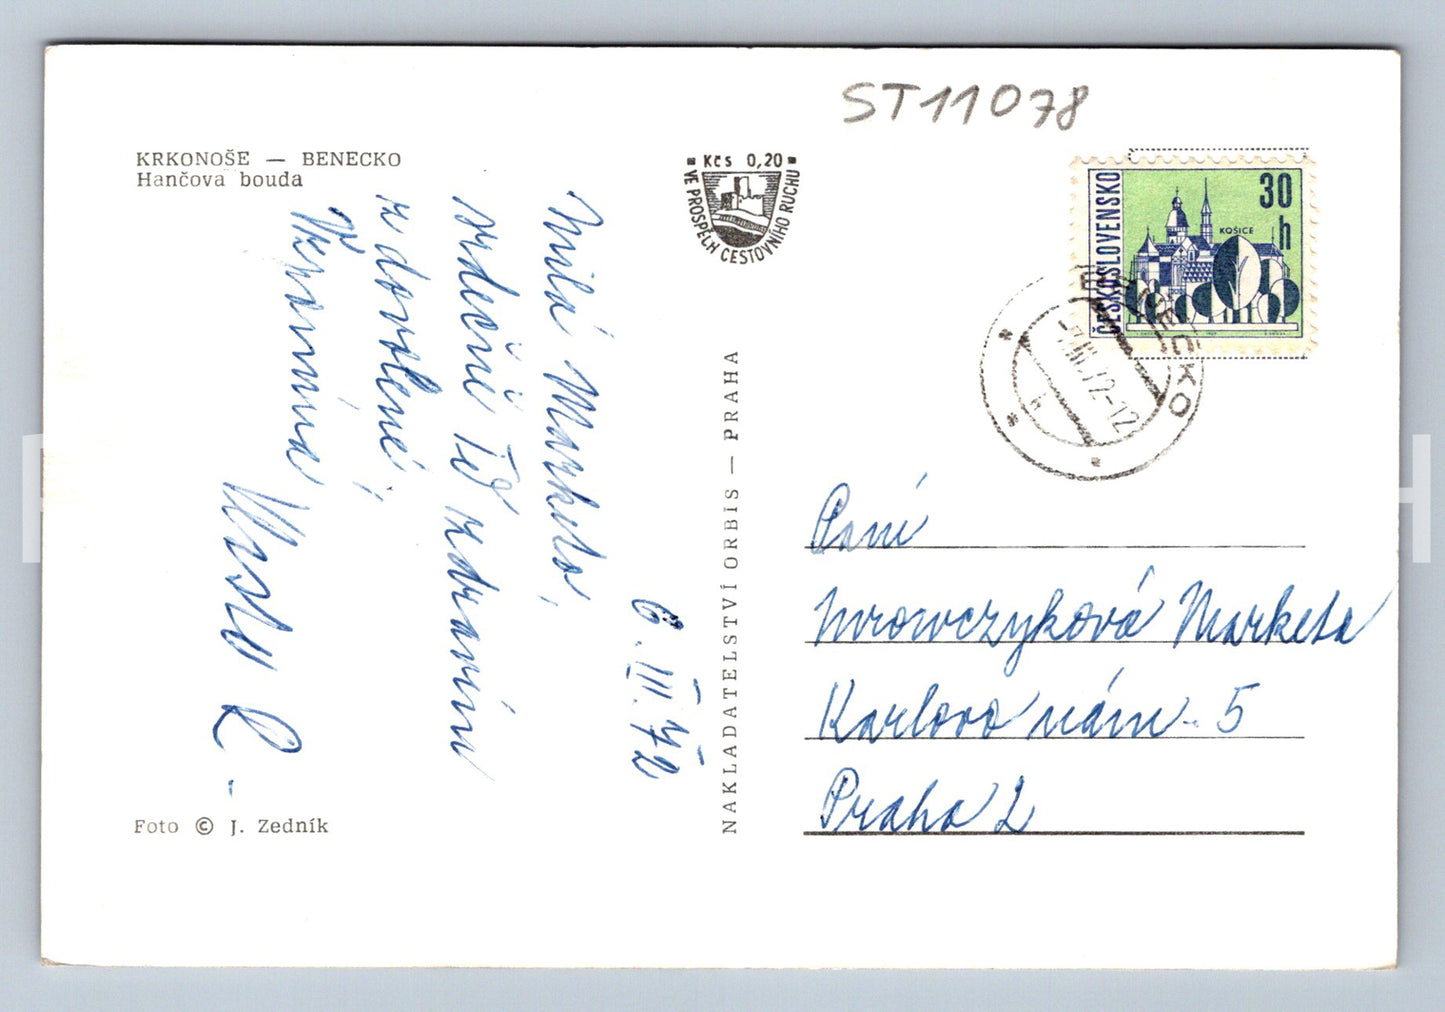 ST11078
KRKONOŠE — BENECKO
Hančova bouda
Kčs 0,20
VE PROSPĚCH CESTOVNÍHO RUCHU
ČESKOSLOVENSKO
30
h
KOŠICE
BENECKO
-7.III.72-12
6. III. 72
Milá Markéto,
srdečně Tě zdravím
z dovolené,
Vzpomíná
NAKLADATELSTVÍ ORBIS — PRAHA
Paní
Mrowczyková Marketa
Karlovo nám. 5
Praha 2
Foto © J. Zedník